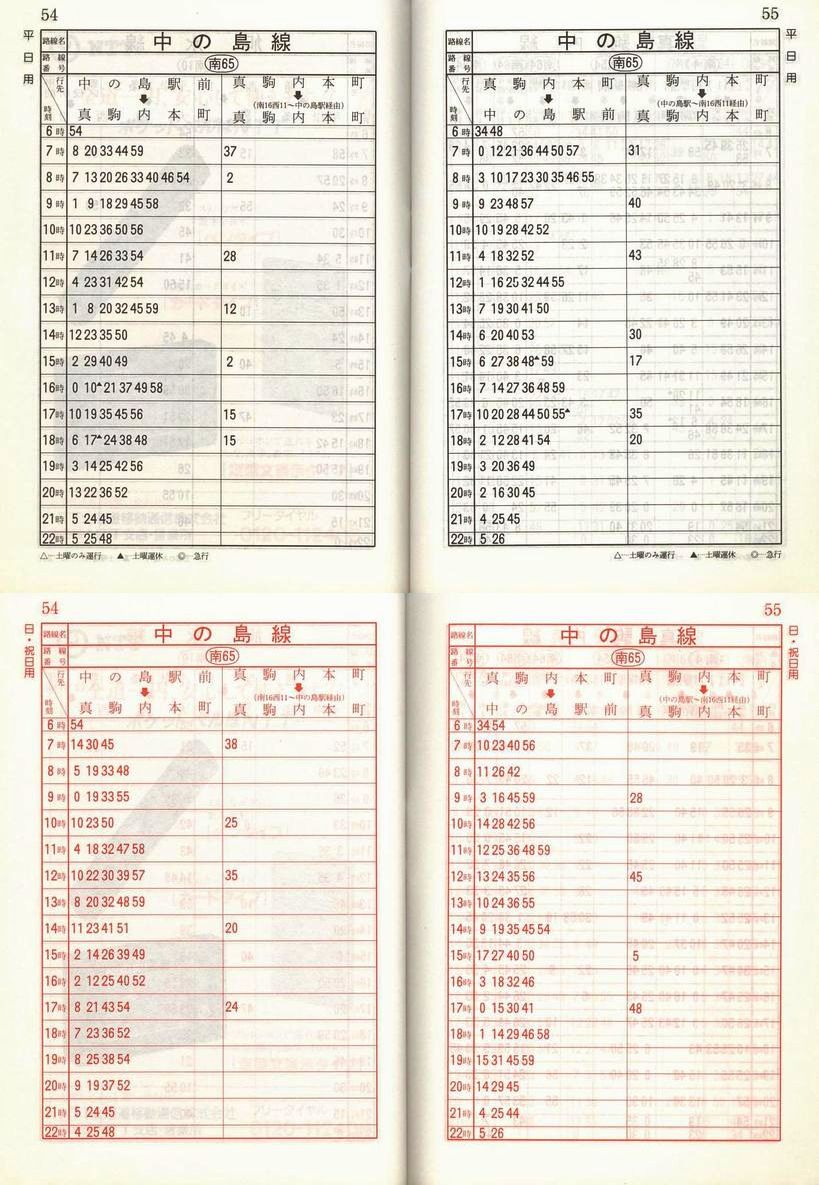 54
平日用
路線名 中の島線
路線番号 南65
行先 時刻 中の島駅前 ↓ 真駒内本町 真駒内本町 ↓ (南16西11〜中の島駅経由) 真駒内本町
6時 54
7時 8 20 33 44 59 37
8時 7 13 20 26 33 40 46 54 2
9時 1 9 18 29 45 58
10時 10 23 36 50 56
11時 7 14 26 33 54 28
12時 4 23 31 42 54
13時 1 8 20 32 45 59 12
14時 12 23 35 50
15時 2 29 40 49 2
16時 0 10▲ 21 37 49 58
17時 10 19 35 45 56 15
18時 6 17▲ 24 38 48 15
19時 3 14 25 42 56
20時 13 22 36 52
21時 5 24 45
22時 5 25 48
△…土曜のみ運行 ▲…土曜運休 ◎…急行
55
平日用
路線名 中の島線
路線番号 南65
行先 時刻 真駒内本町 ↓ 中の島駅前 真駒内本町 ↓ (中の島駅〜南16西11経由) 真駒内本町
6時 34 48
7時 0 12 21 36 44 50 57 31
8時 3 10 17 23 30 35 46 55
9時 9 23 48 57 40
10時 10 19 28 42 52
11時 4 18 32 52 43
12時 1 16 25 32 44 55
13時 7 19 30 41 50
14時 6 20 40 53 30
15時 6 27 38 48▲ 59 17
16時 7 14 27 36 48 59
17時 10 20 28 44 50 55▲ 35
18時 2 12 28 41 54 20
19時 3 20 36 49
20時 2 16 30 45
21時 4 25 45
22時 5 26
△…土曜のみ運行 ▲…土曜運休 ◎…急行
54
日・祝日用
路線名 中の島線
路線番号 南65
行先 時刻 中の島駅前 ↓ 真駒内本町 真駒内本町 ↓ (南16西11〜中の島駅経由) 真駒内本町
6時 54
7時 14 30 45 38
8時 5 19 33 48
9時 0 19 33 55
10時 10 23 50 25
11時 4 18 32 47 58
12時 10 22 30 39 57 35
13時 8 20 32 48 59
14時 11 23 41 51 20
15時 2 14 26 39 49
16時 2 12 25 40 52
17時 8 21 43 54 24
18時 7 23 36 52
19時 8 25 38 54
20時 9 19 37 52
21時 5 24 45
22時 4 25 48
55
日・祝日用
路線名 中の島線
路線番号 南65
行先 時刻 真駒内本町 ↓ 中の島駅前 真駒内本町 ↓ (中の島駅〜南16西11経由) 真駒内本町
6時 34 54
7時 10 23 40 56
8時 11 26 42
9時 3 16 45 59 28
10時 14 28 42 56
11時 12 25 36 48 59
12時 13 24 35 56 45
13時 10 24 36 55
14時 9 19 35 45 54
15時 17 27 40 50 5
16時 3 18 32 46
17時 0 15 30 41 48
18時 1 14 29 46 58
19時 15 31 45 59
20時 14 29 45
21時 4 25 44
22時 5 26